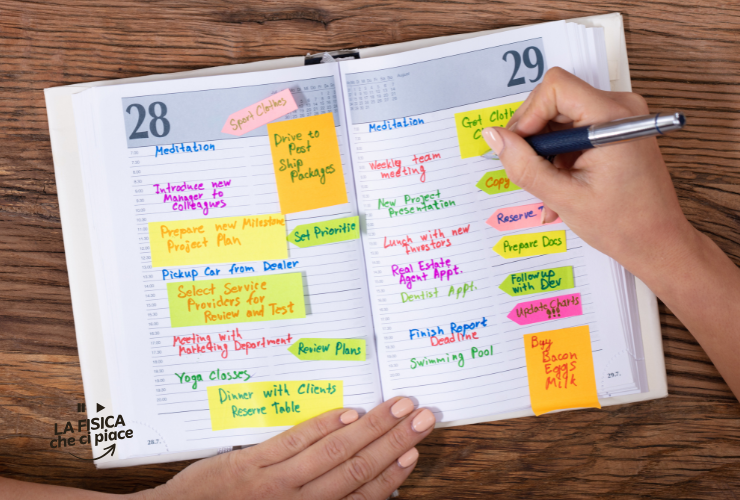 28
Sport Clothes
Meditation
Drive to
Post
Ship
Packages
Introduce new
Manager to
Colleagues
Prepare new Milestone
Project Plan
Set Prioritie
Pickup Car from Dealer
Select Service
Providers for
Review and Test
Meeting with
Marketing Department
Review Plans
Yoga Classes
Dinner with Clients
Reserve Table
28.7.
29
August
Meditation
Get Cloth
Weekly team
meeting
Copy
New Project
Presentation
Reserve T
Lunch with new
Investors
Prepare Docs
Real Estate
Agent Appt.
Follow up
with Dev
Dentist Appt.
Update Charts
!!!
Finish Report
Deadline
Buy
Bacon
Eggs
Milk
Swimming Pool
29.7.
LA FISICA
che ci piace